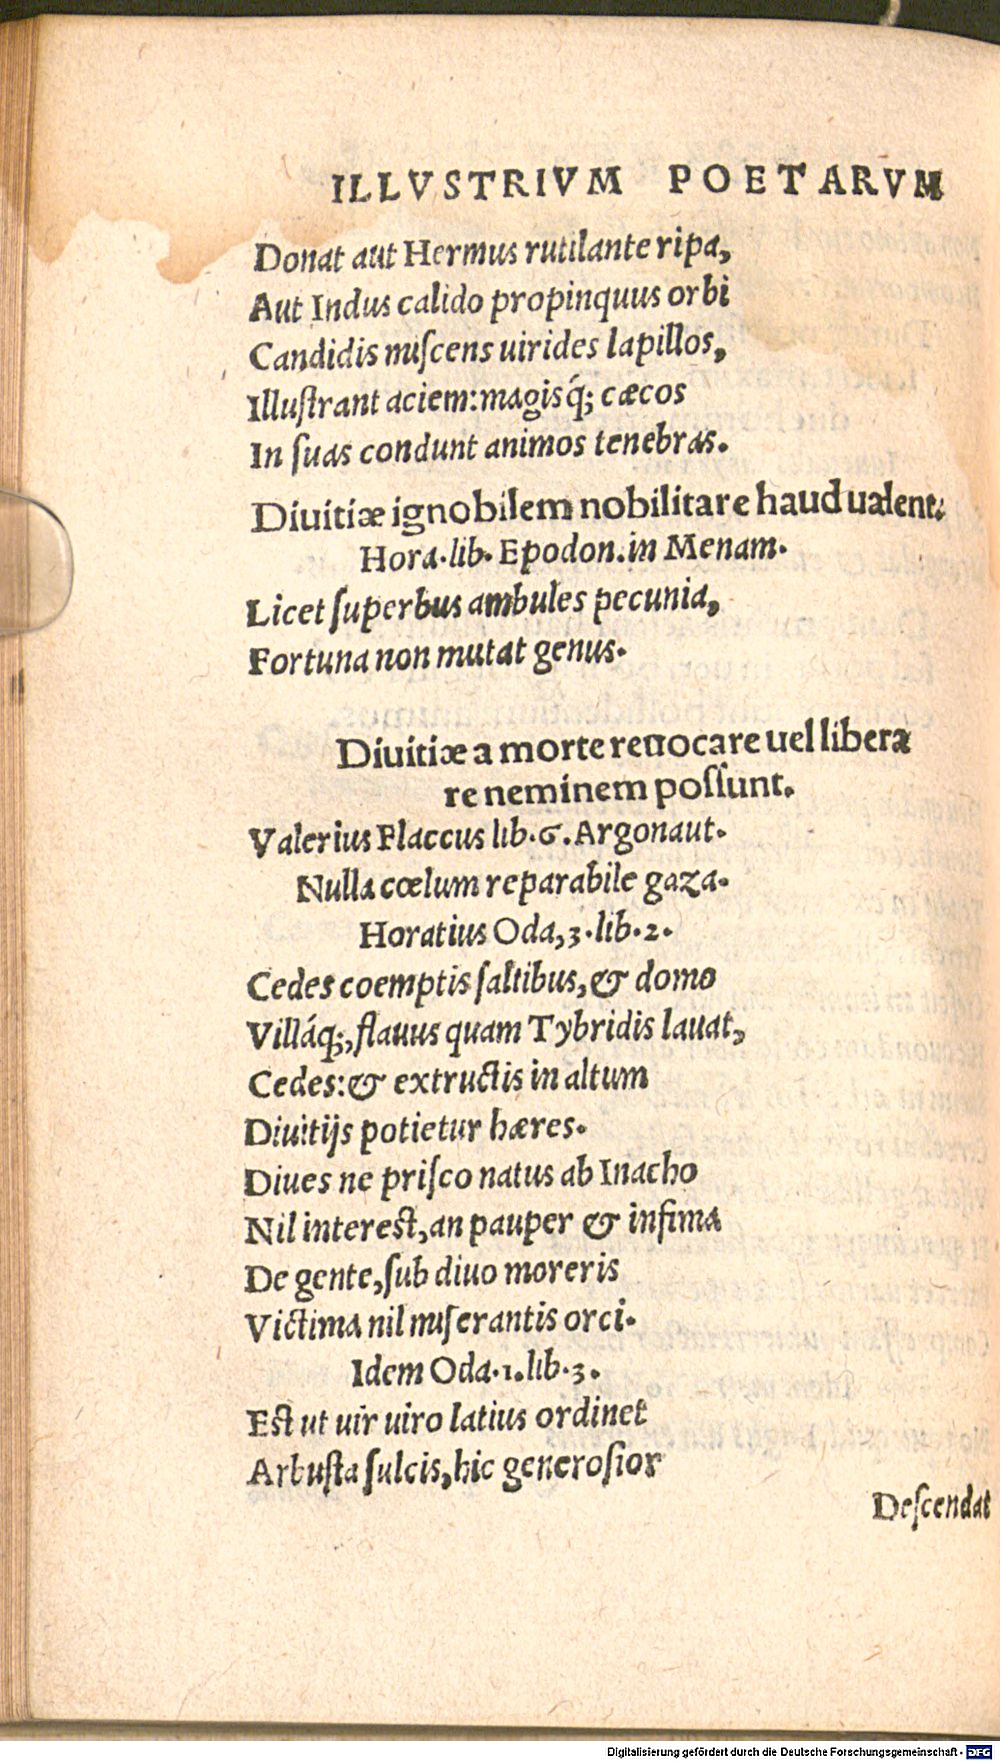 ILLVSTRIVM POETARVM
Donat aut Hermus rutilante ripa,
Aut Indus calido propinquus orbi
Candidis miſcens uirides lapillos,
Illuſtrant aciem:magisq́; cæcos
In ſuas condunt animos tenebras.
Diuitiæ ignobilem nobilitare haud ualent.
Hora.lib.Epodon.in Menam.
Licet ſuperbus ambules pecunia,
Fortuna non mutat genus.
Diuitiæ a morte reuocare uel libera
re neminem poſſunt.
Valerius Flaccus lib.6.Argonaut.
Nulla cœlum reparabile gaza.
Horatius Oda,3.lib.2.
Cedes coemptis ſaltibus,& domo
Villáq;,flauus quam Tybridis lauat,
Cedes:& extructis in altum
Diuitijs potietur hæres.
Diues ne priſco natus ab Inacho
Nil intereſt,an pauper & infima
De gente,ſub diuo moreris
Victima nil miſerantis orci.
Idem Oda.1.lib.3.
Eſt ut uir uiro latius ordinet
Arbuſta ſulcis,hic generoſior
Deſcendat
Digitalisierung gefördert durch die Deutsche Forschungsgemeinschaft - DFG